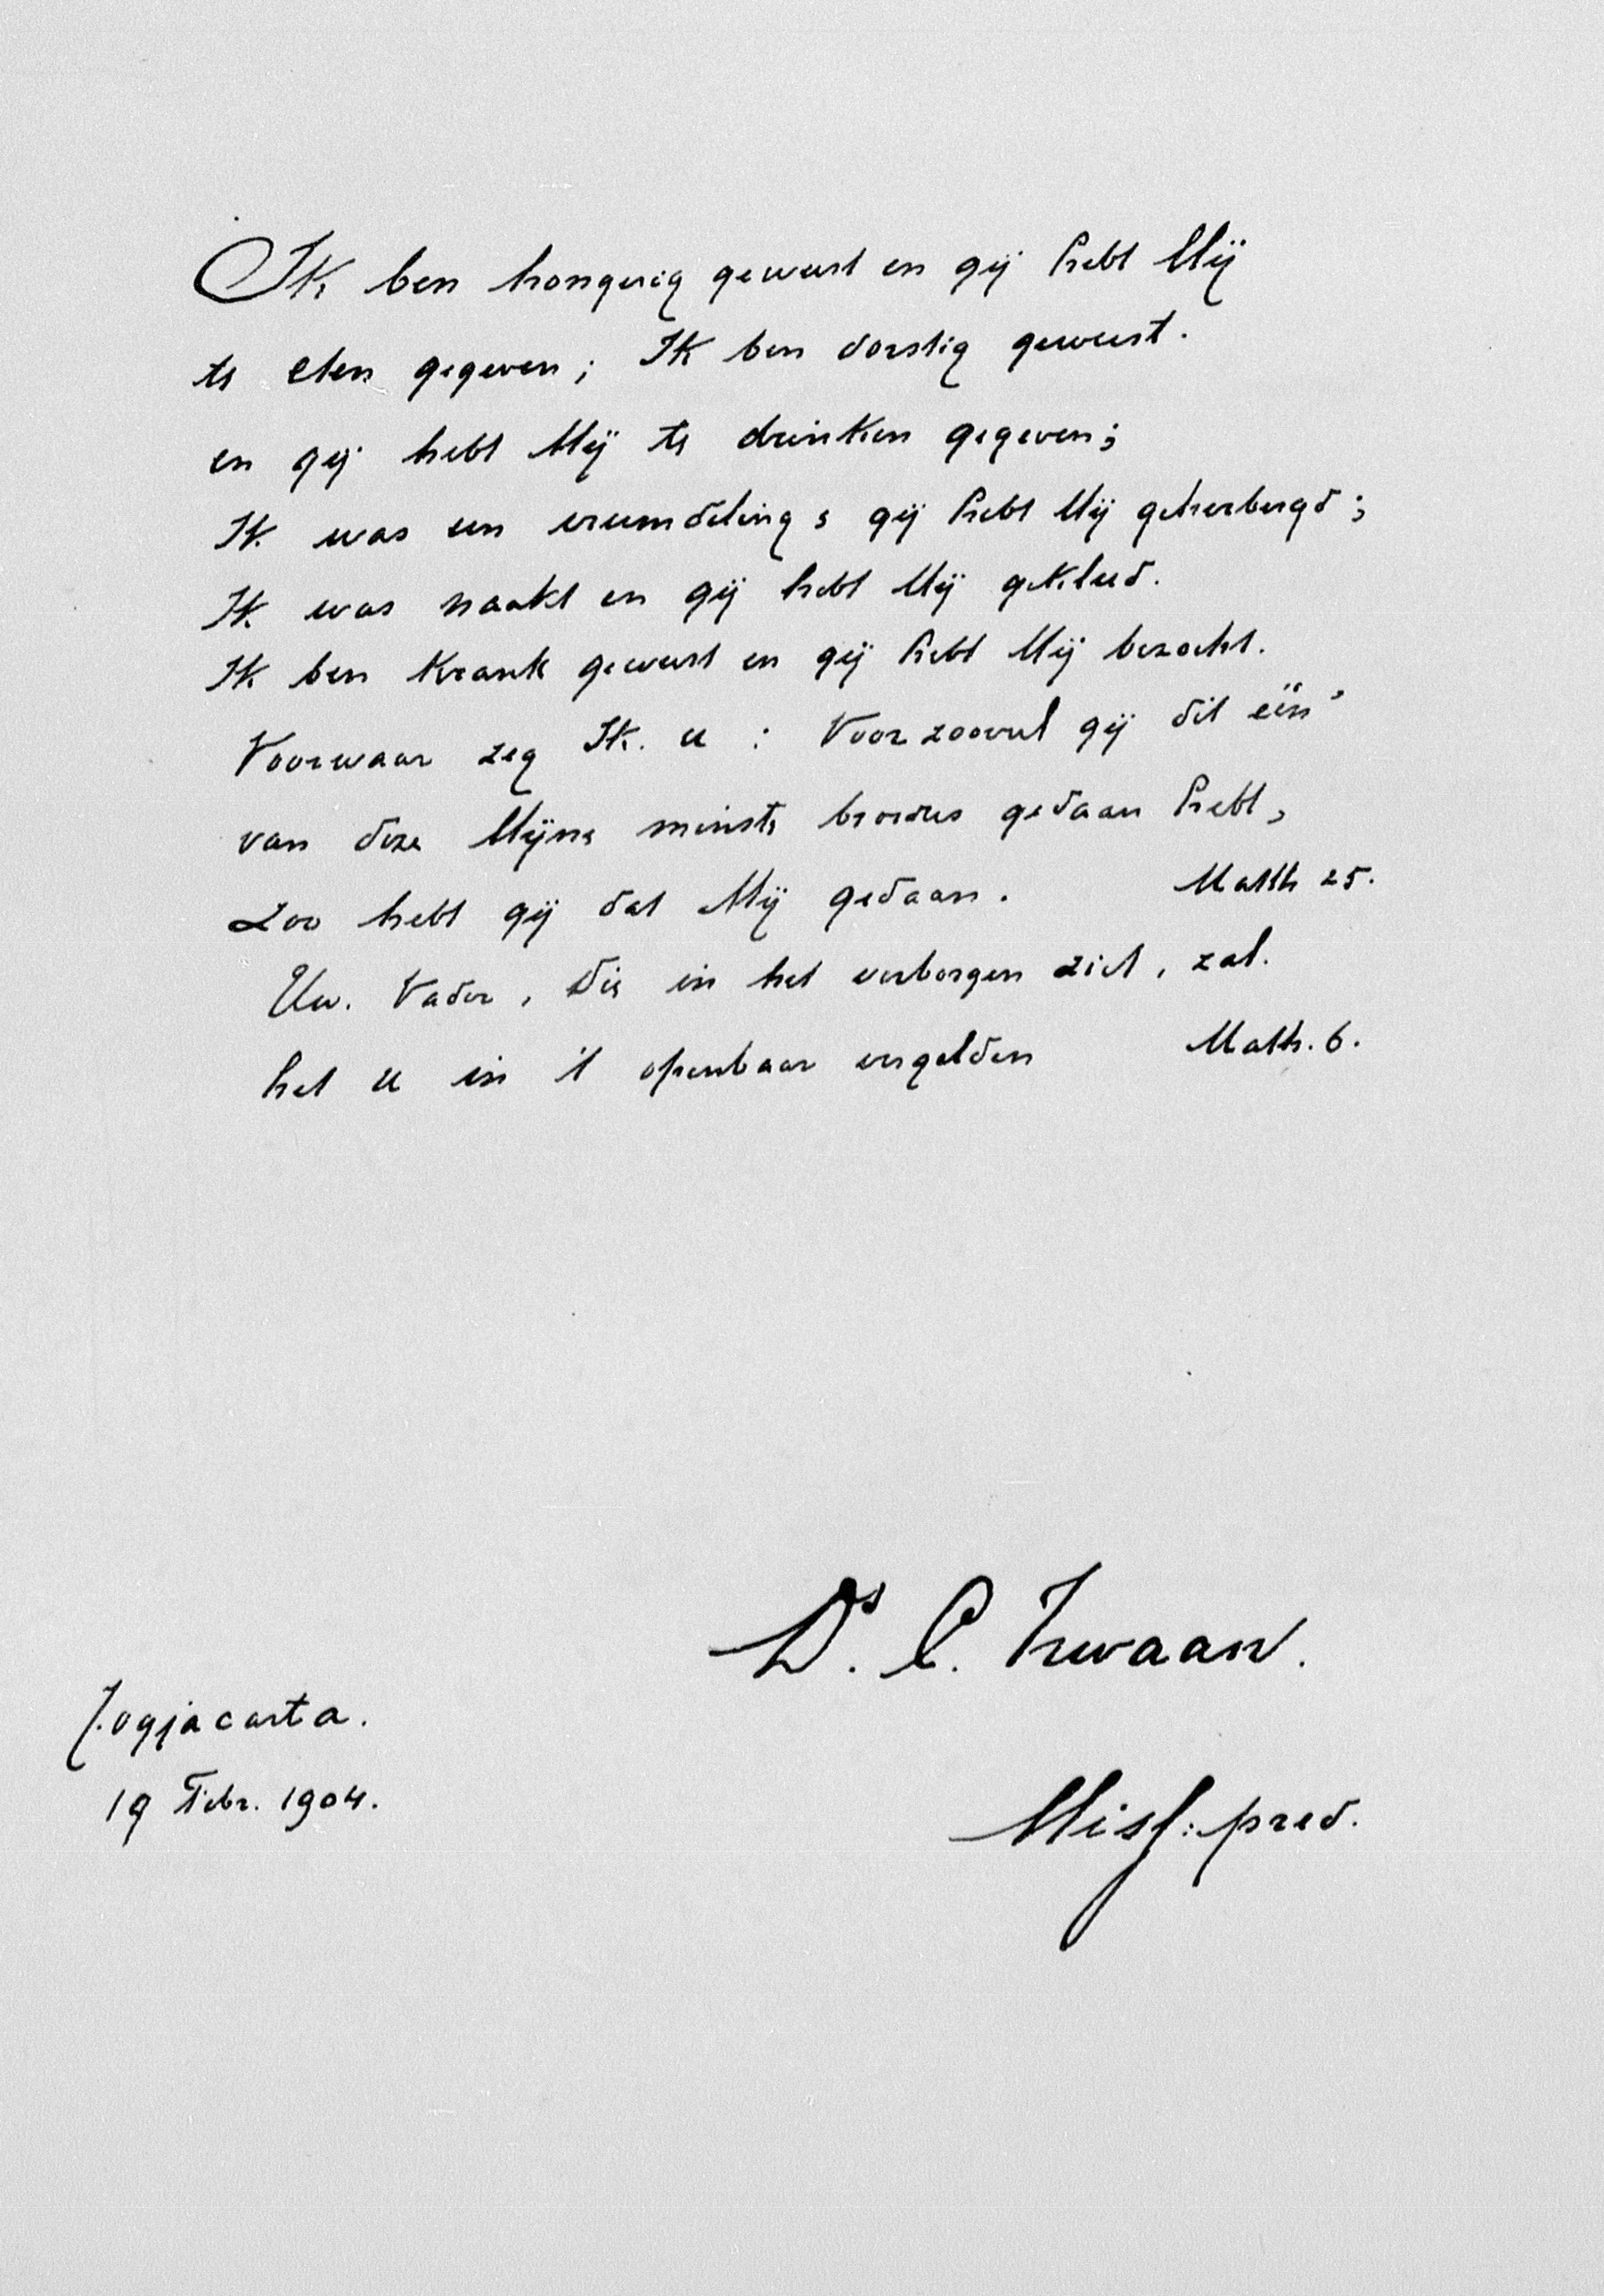 Ik ben hongerig geweest en gij hebt Mij
te eten gegeven; Ik ben dorstig geweest.
en gij hebt Mij te drinken gegeven;
Ik was een vreemdeling & gij hebt Mij geherbergd;
Ik was naakt en gij hebt Mij gekleed.
Ik ben krank geweest en gij hebt Mij bezocht.
Voorwaar zeg Ik u : Voor zooveel gij dit één
van deze Mijne minste broeders gedaan hebt,
Zoo hebt gij dat Mij gedaan. Matth 25.
Uw. Vader, Die in het verborgen ziet, zal.
het u in 't openbaar vergelden Matth. 6.
Ds. C. Zwaan.
Jogjacarta.
19 Febr. 1904.
Miss: pred.